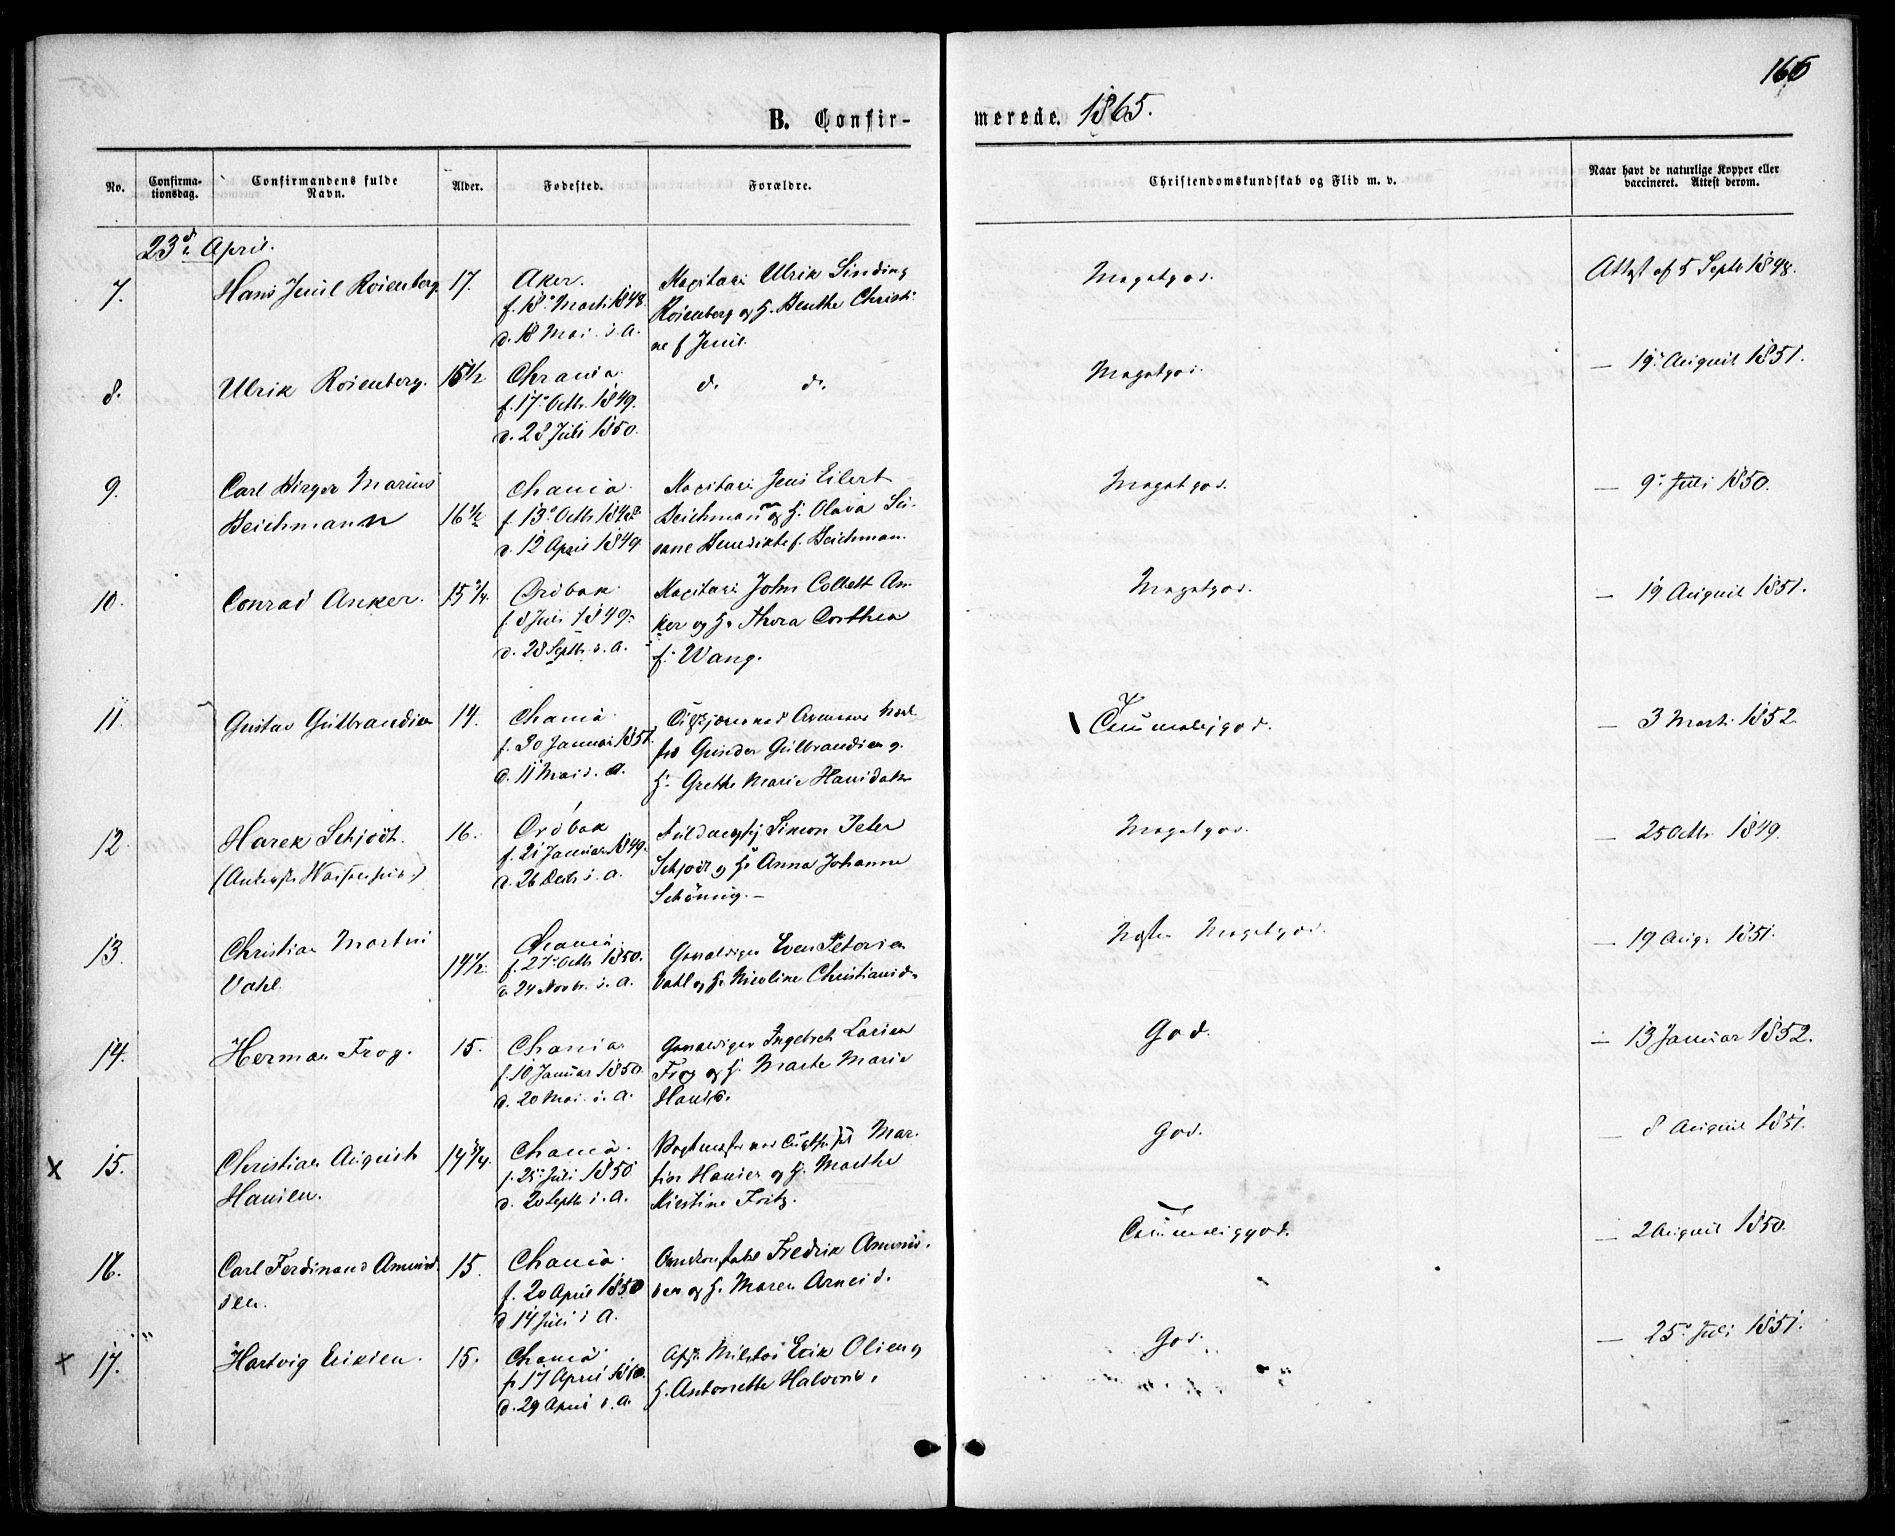 166
B. Confir-
merede. 1865.
No.
Confirma-
tionsdag.
Confirmandens fulde
Navn.
Alder.
Fødested.
Forældre.
Christendomskundskab og Flid m. v.
Naar havt de naturlige Kopper eller
vaccineret. Attest derom.
23d April.
7. Hans Juul Rosenberg. 17.
Aker.
f. 18 Marts 1848.
d. 18 Mai s. A.
Kapitain Ulrik Sinding
Rosenberg og H. Benthe Christi-
ne f Juul.
Megetgod.
Attest af 5 Septb 1848.
8. Ulrik Rosenberg. 15 1/2
Chrania.
f. 17 Octb. 1849.
d. 28 Juli 1850.
d. d.
Megetgod.
— 19 August 1851.
9. Carl Birger Marius
Beichmann 16 1/2
Chania.
f. 13 Octb 1848
d. 12 April 1849
Kapitain Jens Eilert
Beichmann og H. Olava Su-
sane Benedikte f. Beichman.
Megetgod.
— 9 Juli 1850.
10. Conrad Anker. 15 3/4.
Dröbak
f 8 Juli 1849.
d. 28 Septb. s. A.
Kapitain John Collett An-
ker og H. Thora Dorthea
f. Wang.
Megetgod.
— 19 August 1851.
11. Gustav Gulbrandsen 14.
Chania.
f. 30 Januar 1851.
d. 11 Mai s. A.
Gunder Gulbrandsen og
H. Grethe Marie Hansdatr
Taumeliggod.
— 3 Marts 1852
12. Harek Schjødt. 16.
Dröbak
f. 21 Januar 1849.
d. 26 Decb s. A.
Simon Peter
Schjødt og H. Anna Johanne
Schöning. —
Megetgod.
— 25 Octb 1849.
13. Christian Martin
Vahl. 14 1/2.
Chania.
f. 27 Octb 1850.
d. 24 Novbr. s. A.
Even Petersen
Vahl og H. Nicoline Christiansd.
Næsten Megetgod.
— 19 Aug. 1851.
14. Herman Frog. 15.
Chania
f. 10 Januar 1850.
d. 20 Mai s. A.
Ingebret Larsen
Frog og H. Marte Marie
Hansd.
God.
— 13 Januar 1852.
x 15. Christian August
Hansen. 14 3/4.
Chania.
f. 25 Juli 1850
d. 20 Septb s. A.
Mar-
tin Hansen og H. Marthe
Kirstine Fritz.
God.
— 8 August 1851.
16. Carl Ferdinand Amund-
sen. 15.
Chania.
f. 20 April 1850
d 14 Juli s A.
Fredrik Amund-
sen og H. Maren Arnesd.
Taumeliggod.
— 2 August 1850.
x 17. Hartvig Eriksen. 15.
Chania.
f. 17 April 1850.
d. 29 April s. A.
Erik Olsen og
H. Antonette Halvorsd.
God.
— 25 Juli 1851.